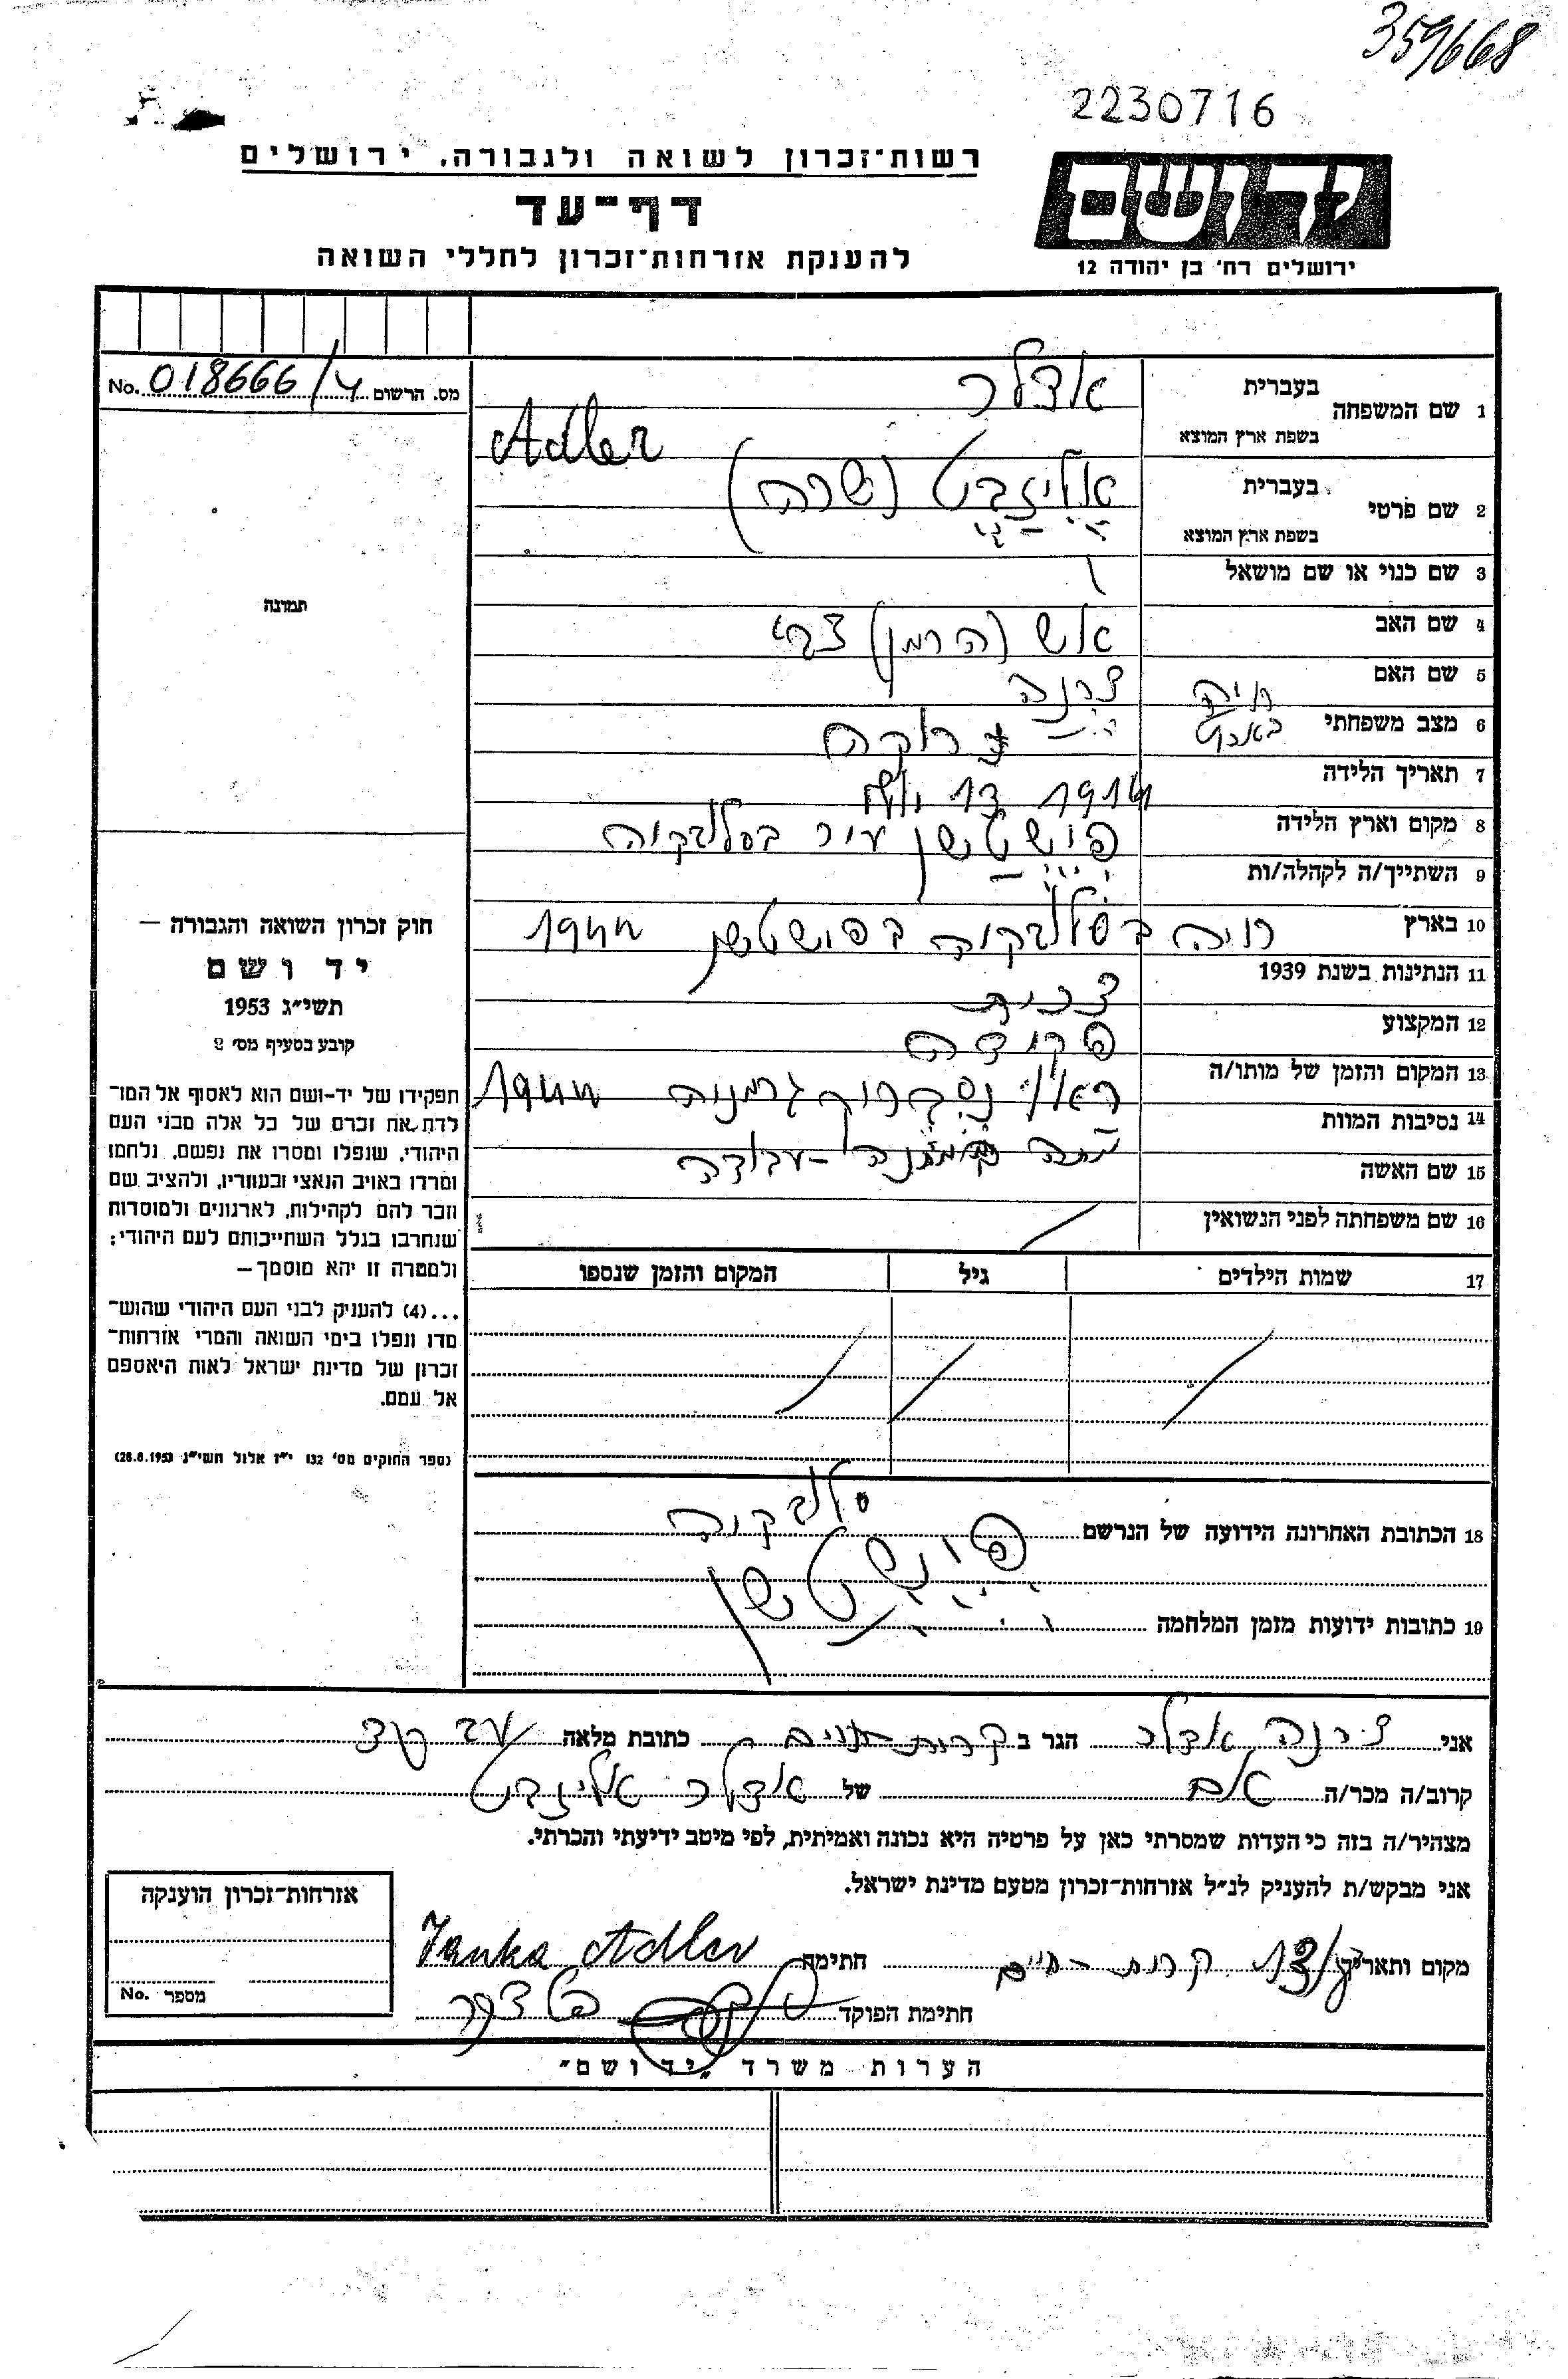 359/668
2230716
ידושם
ירושלים רח' בן יהודה 12
רשות־זכרון לשואה ולגבורה, ירושלים
דף־עד
להענקת אזרחות־זכרון לחללי השואה
מס. הרשום 018666/4 No.
1 שם המשפחה בעברית אדלר
בשפת ארץ המוצא Adler
2 שם פרטי בעברית אליזבט (שרה)
בשפת ארץ המוצא
3 שם כנוי או שם מושאל
4 שם האב אש (הרמן) צבי
5 שם האם צרנה
6 מצב משפחתי רוקה
7 תאריך הלידה 1914
8 מקום וארץ הלידה פישטשן עיר בסלובקיה
9 השתייך/ה לקהלה/ות
10 בארץ בסלובקיה בפישטשן 1944
11 הנתינות בשנת 1939 צכית
12 המקצוע פקידה
13 המקום והזמן של מותו/ה גרמניה 1944
14 נסיבות המוות עבודה
15 שם האשה
16 שם משפחתה לפני הנשואין
17 שמות הילדים גיל המקום והזמן שנספו
תמונה
חוק זכרון השואה והגבורה —
יד ושם
תשי״ג 1953
קובע בסעיף מס' 2
תפקידו של יד-ושם הוא לאסוף אל המו־
לדת את זכרם של כל אלה מבני העם
היהודי, שנפלו ומסרו את נפשם, נלחמו
ומרדו באויב הנאצי ובעוזריו, ולהציב שם
וזכר להם לקהילות, לארגונים ולמוסדות
שנחרבו בגלל השתייכותם לעם היהודי;
ולמטרה זו יהא מוסמך—
...(4) להעניק לבני העם היהודי שהוש־
מדו ונפלו בימי השואה והמרי אזרחות־
זכרון של מדינת ישראל לאות היאספם
אל עמם.
(ספר החוקים מס' 132 י״ז אלול תשי״ג 28.8.1953)
18 הכתובת האחרונה הידועה של הנרשם סלובקיה
פישטשן
19 כתובות ידועות מזמן המלחמה
אני צרנה אדלר הגר ב קרית חיים כתובת מלאה
קרוב/ה מכר/ה אם של אדלר אליזבט
מצהיר/ה בזה כי העדות שמסרתי כאן על פרטיה היא נכונה ואמיתית, לפי מיטב ידיעתי והכרתי.
אני מבקש/ת להעניק לנ״ל אזרחות־זכרון מטעם מדינת ישראל.
מקום ותאריך קרית-חיים חתימה Janka Adler
חתימת הפוקד
אזרחות־זכרון הוענקה
מספר No.
הערות משרד „יד ושם״